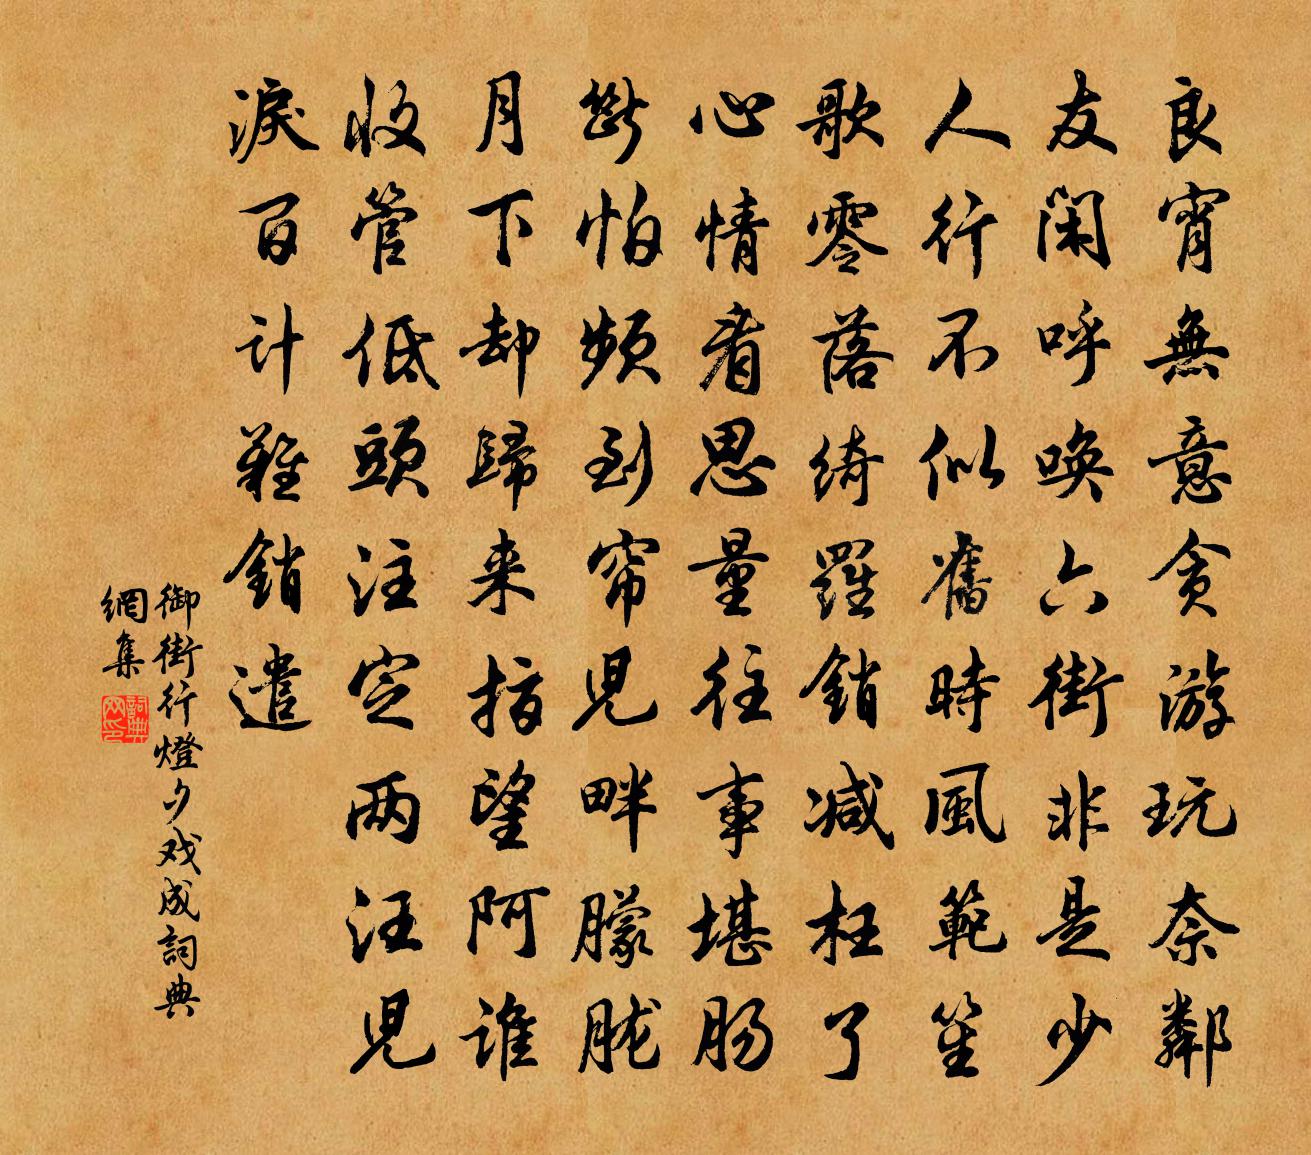 良宵無意貪游玩奈鄰
友閑呼喚六街非是少
人行不似舊時風範笙
歌零落綺羅銷減枉了
心情看思量往事堪腸
斷怕頻到帘兒畔朦朧
月下却歸来指望阿誰
收管低頭注定两汪兒
淚百计難銷遣
御街行燈夕戏成詞典
網集